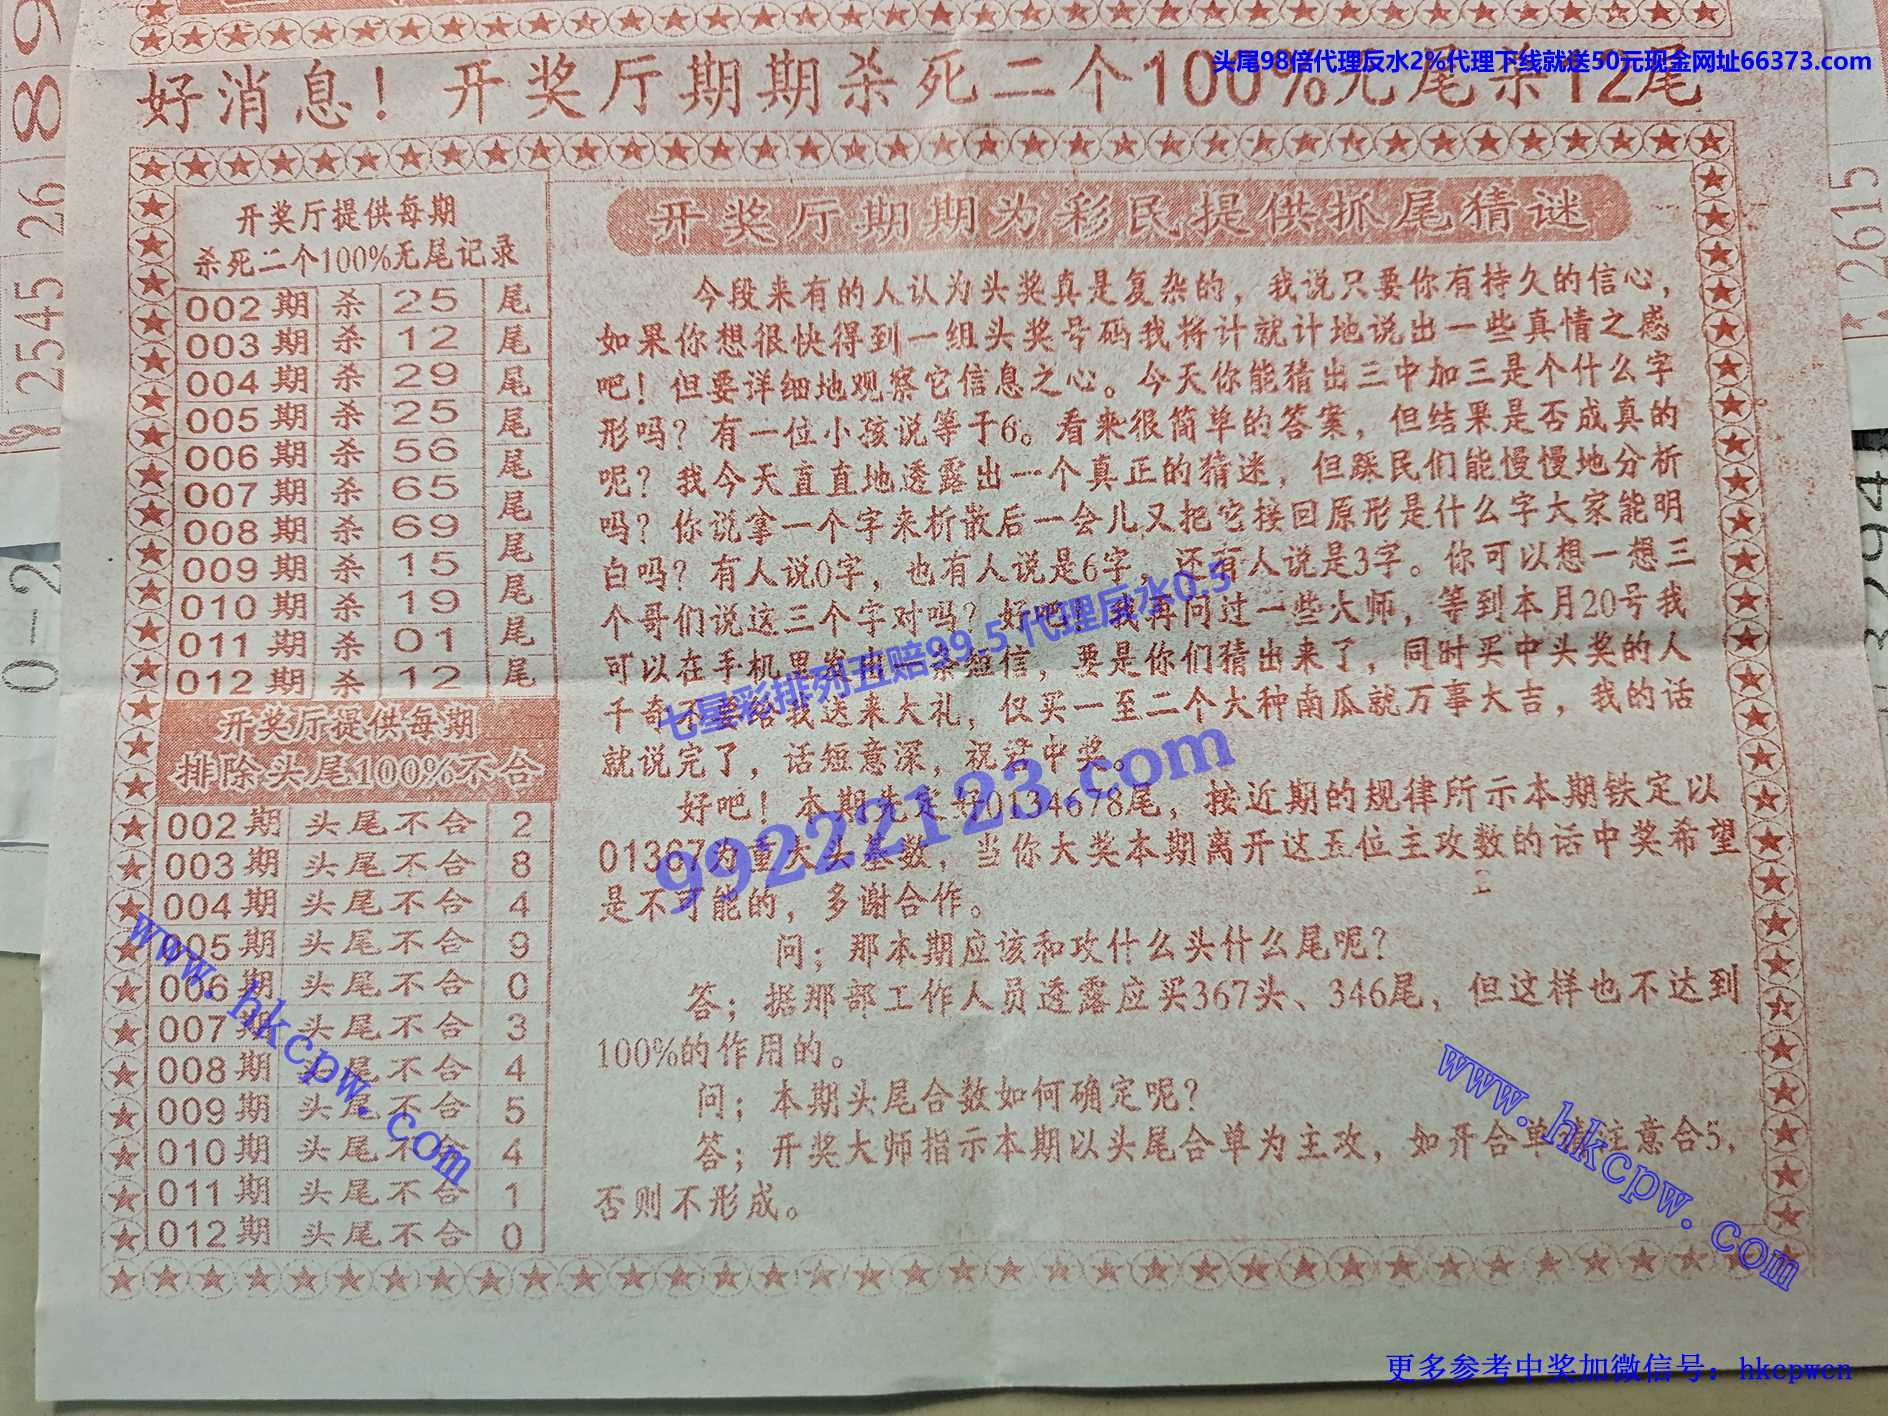 头尾98倍代理反水2%代理下线就送50元现金网址66373.com
好消息！开奖厅期期杀死二个100%无尾杀12尾
开奖厅提供每期
杀死二个100%无尾记录
002期 杀 25 尾
003期 杀 12 尾
004期 杀 29 尾
005期 杀 25 尾
006期 杀 56 尾
007期 杀 65 尾
008期 杀 69 尾
009期 杀 15 尾
010期 杀 19 尾
011期 杀 01 尾
012期 杀 12 尾
开奖厅提供每期
排除头尾100%不合
002期 头尾不合 2
003期 头尾不合 8
004期 头尾不合 4
005期 头尾不合 9
006期 头尾不合 0
007期 头尾不合 3
008期 头尾不合 4
009期 头尾不合 5
010期 头尾不合 4
011期 头尾不合 1
012期 头尾不合 0
开奖厅期期为彩民提供抓尾猜谜
今段来有的人认为头奖真是复杂的，我说只要你有持久的信心，
如果你想很快得到一组头奖号码我将计就计地说出一些真情之感
吧！但要详细地观察它信息之心。今天你能猜出三中加三是个什么字
形吗？有一位小孩说等于6。看来很简单的答案，但结果是否成真的
呢？我今天直直地透露出一个真正的猜迷，但踩民们能慢慢地分析
吗？你说拿一个字来析散后一会儿又把它接回原形是什么字大家能明
白吗？有人说0字，也有人说是6字，还有人说是3字。你可以想一想三
个哥们说这三个字对吗？好吧！我再问过一些大师，等到本月20号我
可以在手机里发出一条短信，要是你们猜出来了，同时买中头奖的人
千奇不要给我送来大礼，仅买一至二个大种南瓜就万事大吉，我的话
就说完了，话短意深，祝君中奖。
好吧！本期先定好0134678尾，按近期的规律所示本期铁定以
01367为重大头基数，当你大奖本期离开这五位主攻数的话中奖希望
是不可能的，多谢合作。
问；那本期应该和攻什么头什么尾呢？
答；据那部工作人员透露应买367头、346尾，但这样也不达到
100%的作用的。
问；本期头尾合数如何确定呢？
答；开奖大师指示本期以头尾合单为主攻，如开合单请注意合5，
否则不形成。
七星彩排列五赔99.5 代理反水0.5
99222123.com
www.hkcpw.com
www.hkcpw.com
更多参考中奖加微信号：hkcpwcn
89
2545 26
2615
0-2
3 294